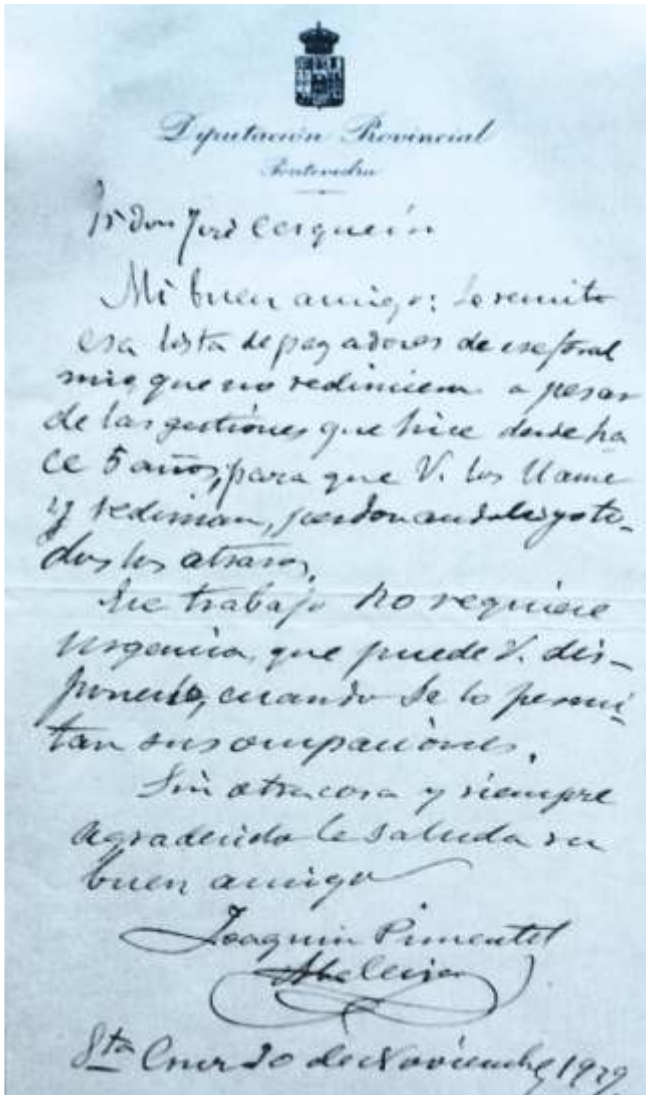 Diputación Provincial
Pontevedra
Sr don José Cerqueira
Mi buen amigo: Le remito
esa lista de pagadores de ese foral
mio, que no redimieron a pesar
de las gestiones que hice desde ha
ce 5 años, para que V. los llame
y rediman, perdonandoles yo to-
dos los atrasos.
Ese trabajo no requiere
urgencia, que puede V. dis-
ponerlo, cuando se lo permi-
tan sus ocupaciones.
Sin otra cosa y siempre
agradecido le saluda su
buen amigo
Joaquin Pimentel
Sta Cruz 30 de Noviembre 1929